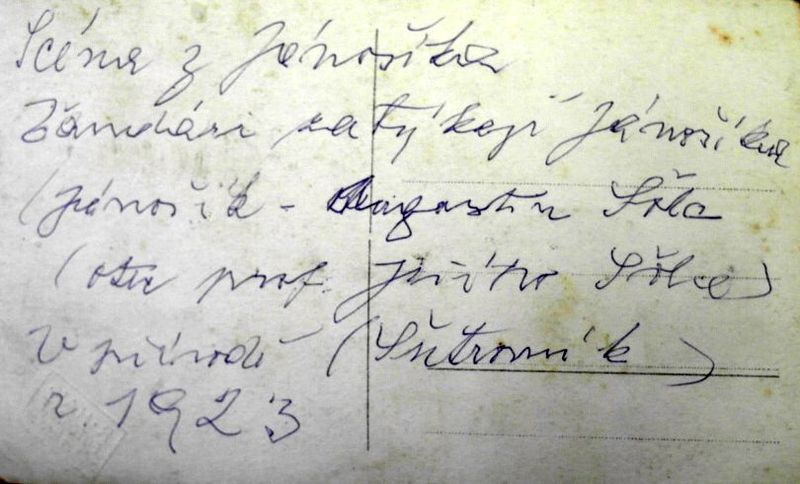 Scéna z Jánošíka
Žandári zatýkají Jánošíka
(Jánošík - Augustin Šola
(otec prof. Jiřího Šole)
V přírodě (Šutrovník)
r 1923